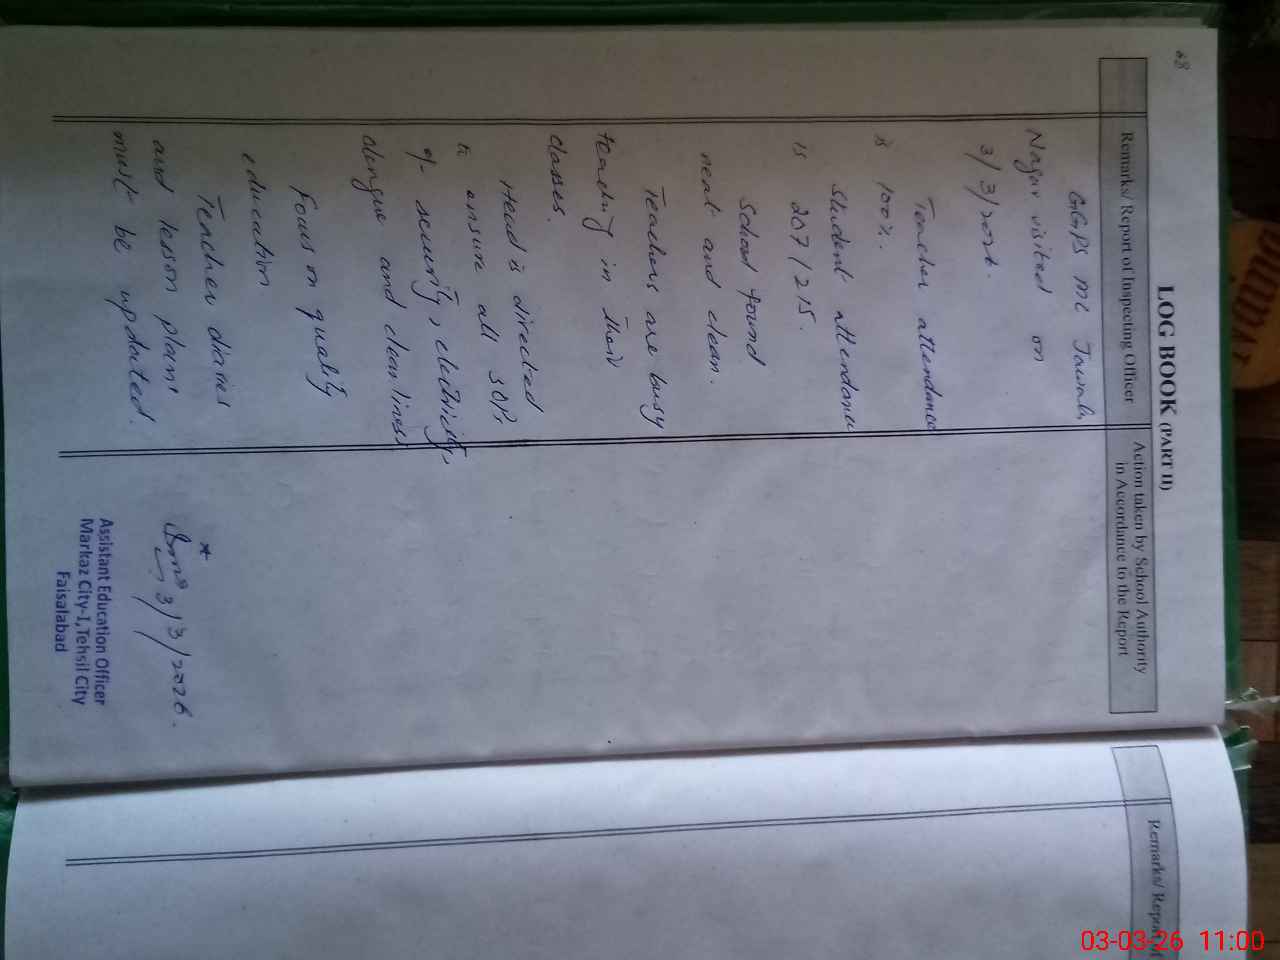 68
LOG BOOK (PART II)
Remarks/ Report of Inspecting Officer
Action taken by School Authority
in Accordance to the Report
GGPS MC Jawala
Nagar visited on
3/3/2026.
Teacher attendance
is 100%.
Student attendance
is 207/215.
School found
neat and clean.
Teachers are busy
teaching in their
classes.
Head is directed
to ensure all SOPs
of security, electricity,
dengue and cleanliness
Focus on quality
education
Teacher diaries
and lesson plans
must be updated.
3/3/2026.
Assistant Education Officer
Markaz City-I, Tehsil City
Faisalabad
Remarks/ Report of
03-03-26 11:00